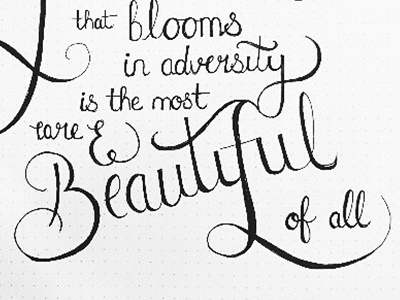 that blooms
in adversity
is the most
rare &
Beautiful
of all